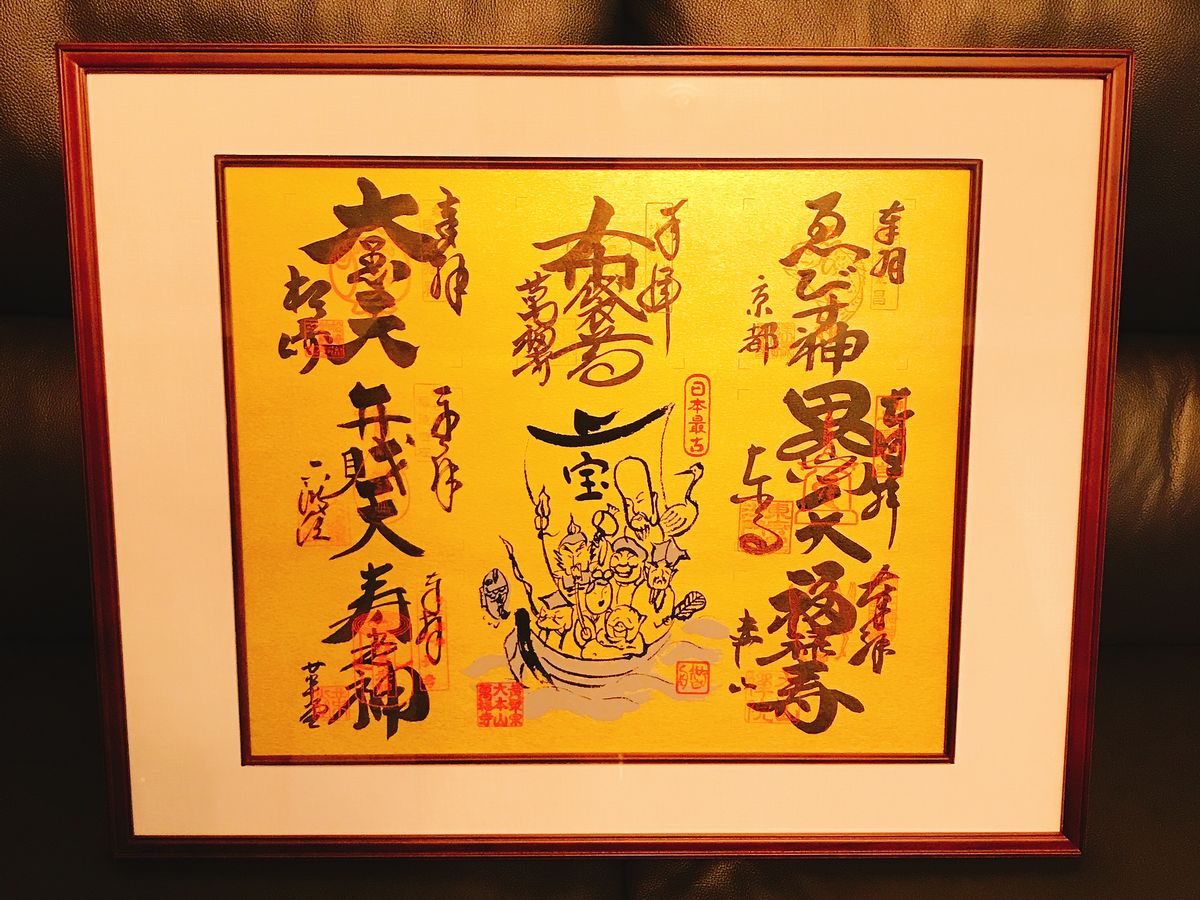 奉拝
ゑびす神
京都
奉拝
毘沙門天
東寺
奉拝
福禄寿
赤山
奉拝
布袋尊
萬福寺
日本最古
宝
黄檗宗
大本山
萬福寺
奉拝
大黒天
松ヶ崎
奉拝
弁財天
六波羅
奉拝
寿老神
革堂